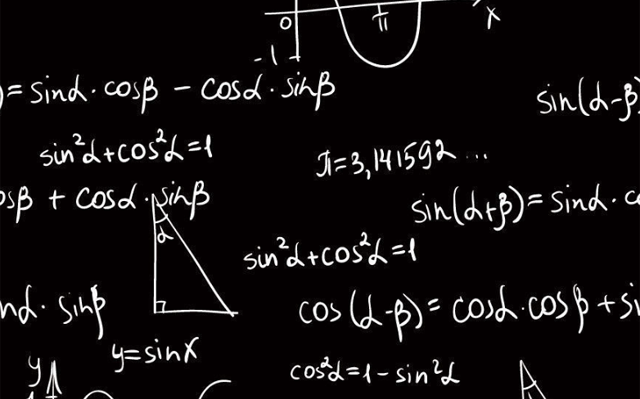 0 π x
-1
) = sinα · cosβ − cosα · sinβ
sin(α-β)
sin²α+cos²α=1
π=3,141592...
osβ + cosα · sinβ
sin(α+β)= sinα · co
α
sin²α+cos²α=1
nα · sinβ
cos(α-β)= cosα·cosβ + si
y=sinx
cos²α=1-sin²α
y